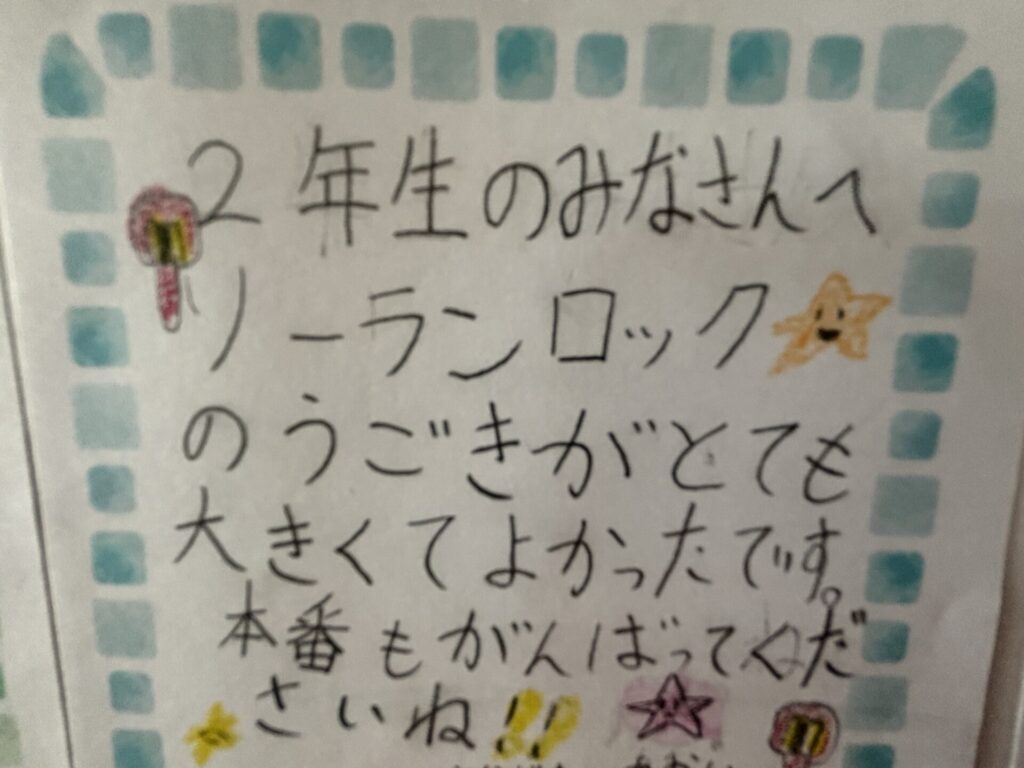 ２年生のみなさんへ
ソーランロック
のうごきがとても
大きくてよかったです。
本番もがんばってくだ
さいね!!